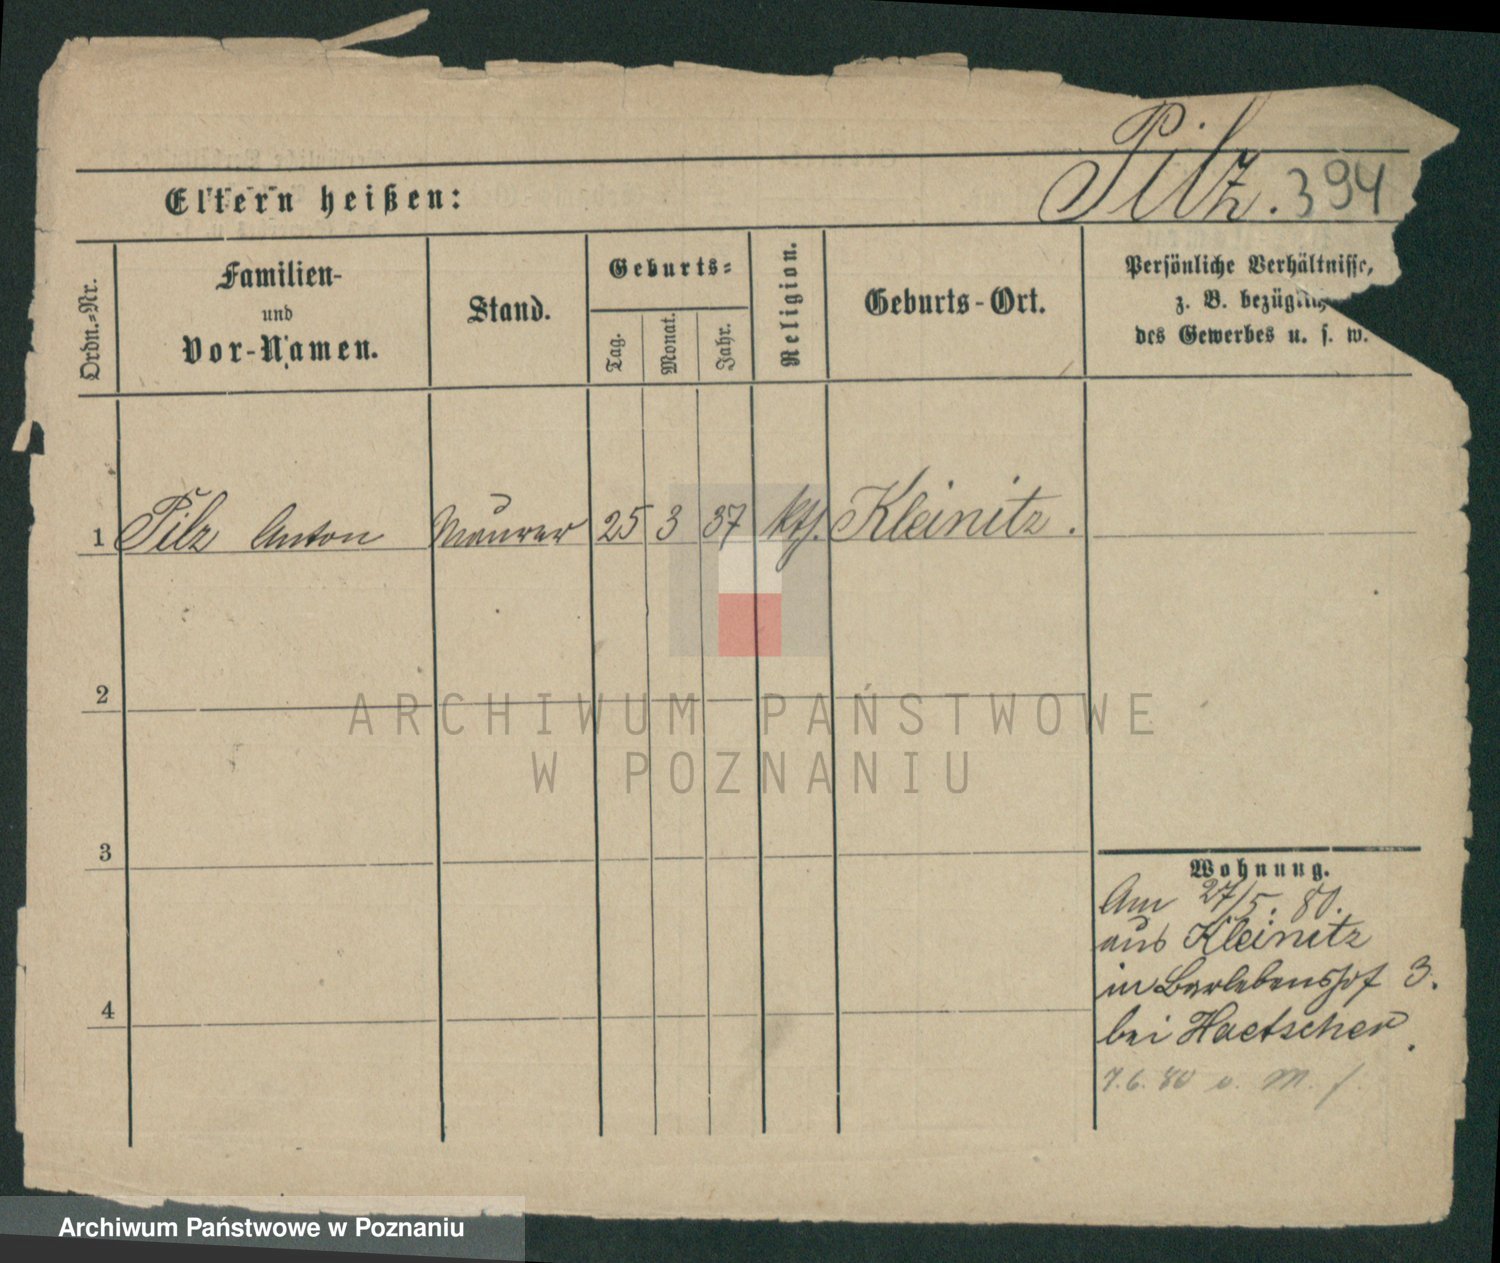 Pilz. 394
Eltern heißen:
Ordn.-Nr.
Familien-
und
Vor-Namen.
Stand.
Geburts-
Tag.
Monat.
Jahr.
Religion.
Geburts-Ort.
Persönliche Verhältnisse,
z. B. bezügli
des Gewerbes u. s. w.
1 Pilz Anton Maurer 25 3 37 kth. Kleinitz.
2
3
4
Wohnung.
Am 27/5. 80.
aus Kleinitz
in Berlebenshof 3.
bei Haetscher.
7.6.80 v. M. f.
ARCHIWUM PAŃSTWOWE
W POZNANIU
Archiwum Państwowe w Poznaniu